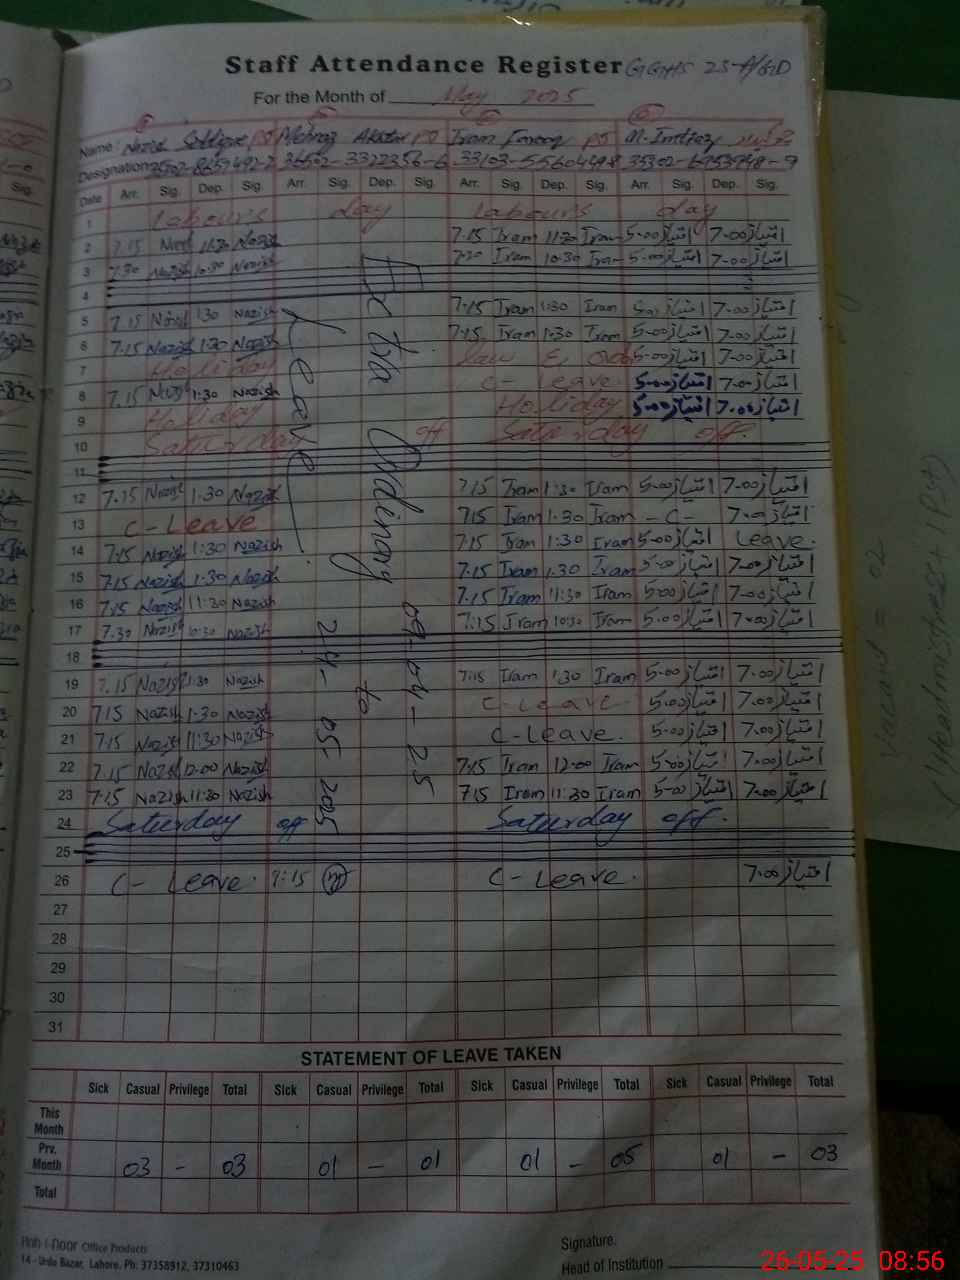 Staff Attendance Register GGHS 25-A/GD
For the Month of May 2025
Name: Nazish Siddique PST Mehnaz Akhtar Iram Farooq PST M. Imtiaz
Designation
Date Arr. Sig. Dep. Sig. Arr. Sig. Dep. Sig. Arr. Sig. Dep. Sig. Arr. Sig. Dep. Sig.
1 Labours day Labours day
2 7.15 11:30 Nazish 7.15 Iram 11:30 Iram 5.00 امتیاز 7.00 امتیاز
3 7.30 Nazish 10.30 Nazish 7.20 Iram 10.30 Iram 5.00 امتیاز 7.00 امتیاز
4
5 7.15 Nazish 1.30 Nazish 7.15 Iram 1:30 Iram 5.00 امتیاز 7.00 امتیاز
6 7.15 Nazish 1.30 Nazish 7.15 Iram 1.30 Iram 5.00 امتیاز 7.00 امتیاز
7 Holiday Law & 5.00 امتیاز 7.00 امتیاز
8 7.15 Nazish 1.30 Nazish C- Leave. 5.00 امتیاز 7.00 امتیاز
9 Holiday Holiday 5.00 امتیاز 7.00 امتیاز
10 Saturday off Saturday off.
11
12 7.15 Nazish 1.30 Nazish 7.15 Iram 1:30 Iram 5.00 امتیاز 7.00 امتیاز
13 C-Leave 7.15 Iram 1.30 Iram -C- 7.00 امتیاز
14 7.15 Nazish 1:30 Nazish 7.15 Iram 1:30 Iram 5.00 امتیاز Leave.
15 7.15 Nazish 1.30 Nazish 7.15 Iram 1.30 Iram 5.00 امتیاز 7.00 امتیاز
16 7.15 Nazish 11:30 Nazish 7.15 Iram 11:30 Iram 5.00 امتیاز 7.00 امتیاز
17 7.30 Nazish 10:30 Nazish 7:15 Iram 10:30 Iram 5.00 امتیاز 7.00 امتیاز
18
19 7.15 Nazish 1:30 Nazish 7:15 Iram 1:30 Iram 5.00 امتیاز 7.00 امتیاز
20 7.15 Nazish 1.30 Nazish C-Leave 5.00 امتیاز 7.00 امتیاز
21 7.15 Nazish 11:30 Nazish C-Leave. 5.00 امتیاز 7.00 امتیاز
22 7.15 Nazish 12.00 Nazish 7.15 Iram 12.00 Iram 5.00 امتیاز 7.00 امتیاز
23 7.15 Nazish 11:30 Nazish 7.15 Iram 11:30 Iram 5.00 امتیاز 7.00 امتیاز
24 Saturday off Saturday off.
25
26 C- Leave. 7:15 C-Leave. 7.00 امتیاز
27
28
29
30
31
Extra Odinary
Leave
09-04-25
to
24-05 2025
STATEMENT OF LEAVE TAKEN
Sick Casual Privilege Total Sick Casual Privilege Total Sick Casual Privilege Total Sick Casual Privilege Total
This Month
Prv. Month 03 - 03 01 - 01 01 - 05 01 - 03
Total
Office Products
14 - Urdu Bazar, Lahore. Ph: 37358912, 37310463
Signature.
Head of Institution
Vacant = 02
26-05-25 08:56